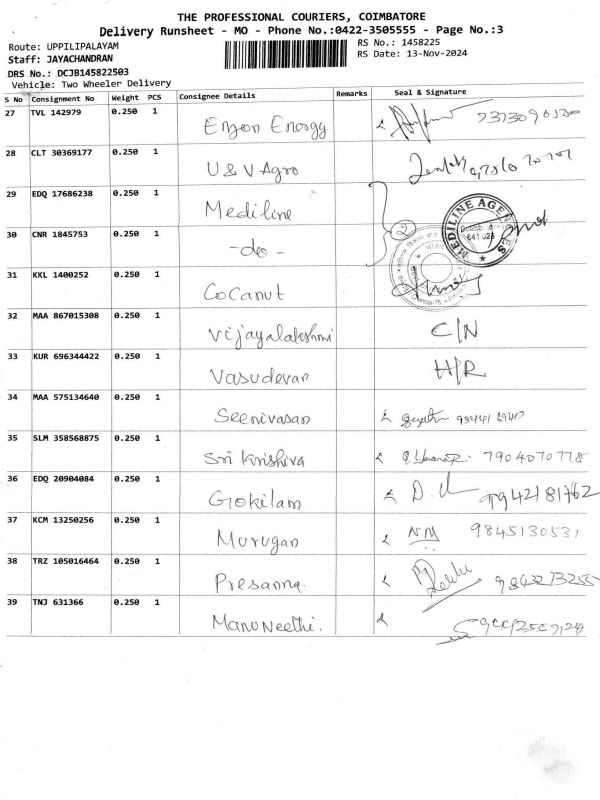 THE PROFESSIONAL COURIERS, COIMBATORE
Delivery Runsheet - MO - Phone No.:0422-3505555 - Page No.:3
Route: UPPILIPALAYAM
RS No.: 1458225
Staff: JAYACHANDRAN
RS Date: 13-Nov-2024
DRS No.: DCJB145822503
Vehicle: Two Wheeler Delivery
S No Consignment No Weight PCS Consignee Details Remarks Seal & Signature
27 TVL 142979 0.250 1 Enzen Energy
28 CLT 30369177 0.250 1 U & V Agro
29 EDQ 17686238 0.250 1 Mediline
MEDILINE AGENCIES
30 CNR 1845753 0.250 1 -do- 2
31 KKL 1400252 0.250 1 Cocanut
32 MAA 867015308 0.250 1 Vijayalakshmi C/N
33 KUR 696344422 0.250 1 Vasudevan H/R
34 MAA 575134640 0.250 1 Seenivasan
35 SLM 358568875 0.250 1 Sri Krishiva 7904070778
36 EDQ 20904084 0.250 1 Gokilam
37 KCM 13250256 0.250 1 Murugan NM 9845130531
38 TRZ 105016464 0.250 1 Presanna.
39 TNJ 631366 0.250 1 ManuNeethi.